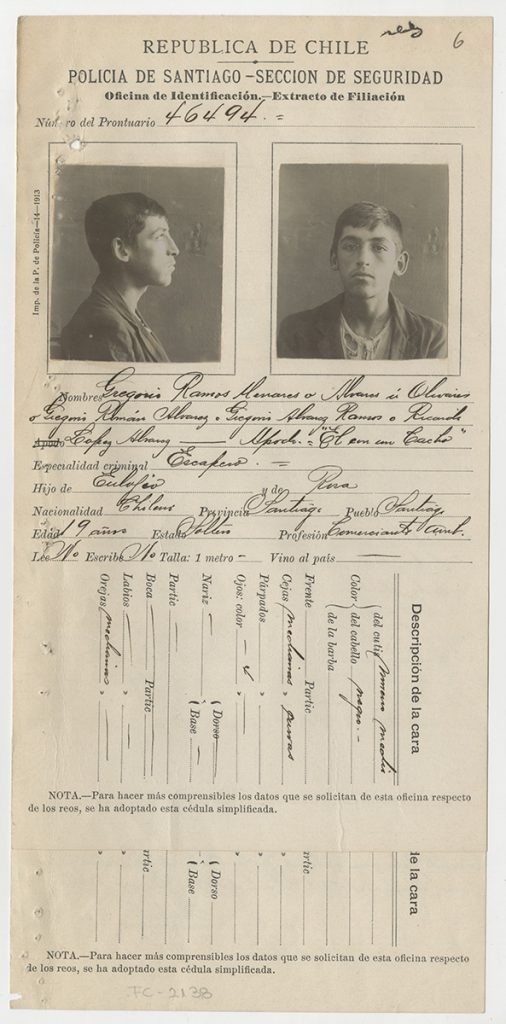 6
REPUBLICA DE CHILE
POLICIA DE SANTIAGO - SECCION DE SEGURIDAD
Oficina de Identificación.—Extracto de Filiación
Número del Prontuario 46494.=
Imp. de la P. de Policía—14—1913
Nombres Gregorio Ramos Menares o Alvares ú Olivares
o Gregorio Román Alvarez o Gregorio Alvarez Ramos o Ricardo
Apodo Lopez Alvarez — Apodo = "El con un Cacho"
Especialidad criminal Escapero.=
Hijo de Eulojio y de Rosa
Nacionalidad Chileno Provincia Santiago Pueblo Santiago
Edad 19 años Estado Soltero Profesión Comerciante
Lee No Escribe No Talla: 1 metro - Vino al país —
Descripción de la cara
Color { del cutis moreno medio
del cabello negro.-
de la barba
Frente Partic
Cejas medianas »
Párpados »
Ojos: color — »
Nariz — { Dorso
Base —
Partic
Boca — Partic
Labios — » —
Orejas medianas » —
NOTA.—Para hacer más comprensibles los datos que se solicitan de esta oficina respecto
de los reos, se ha adoptado esta cédula simplificada.
de la cara
rtic
»
»
{ Dorso
Base
rtic
»
»
NOTA.—Para hacer más comprensibles los datos que se solicitan de esta oficina respecto
de los reos, se ha adoptado esta cédula simplificada.
FC-2138